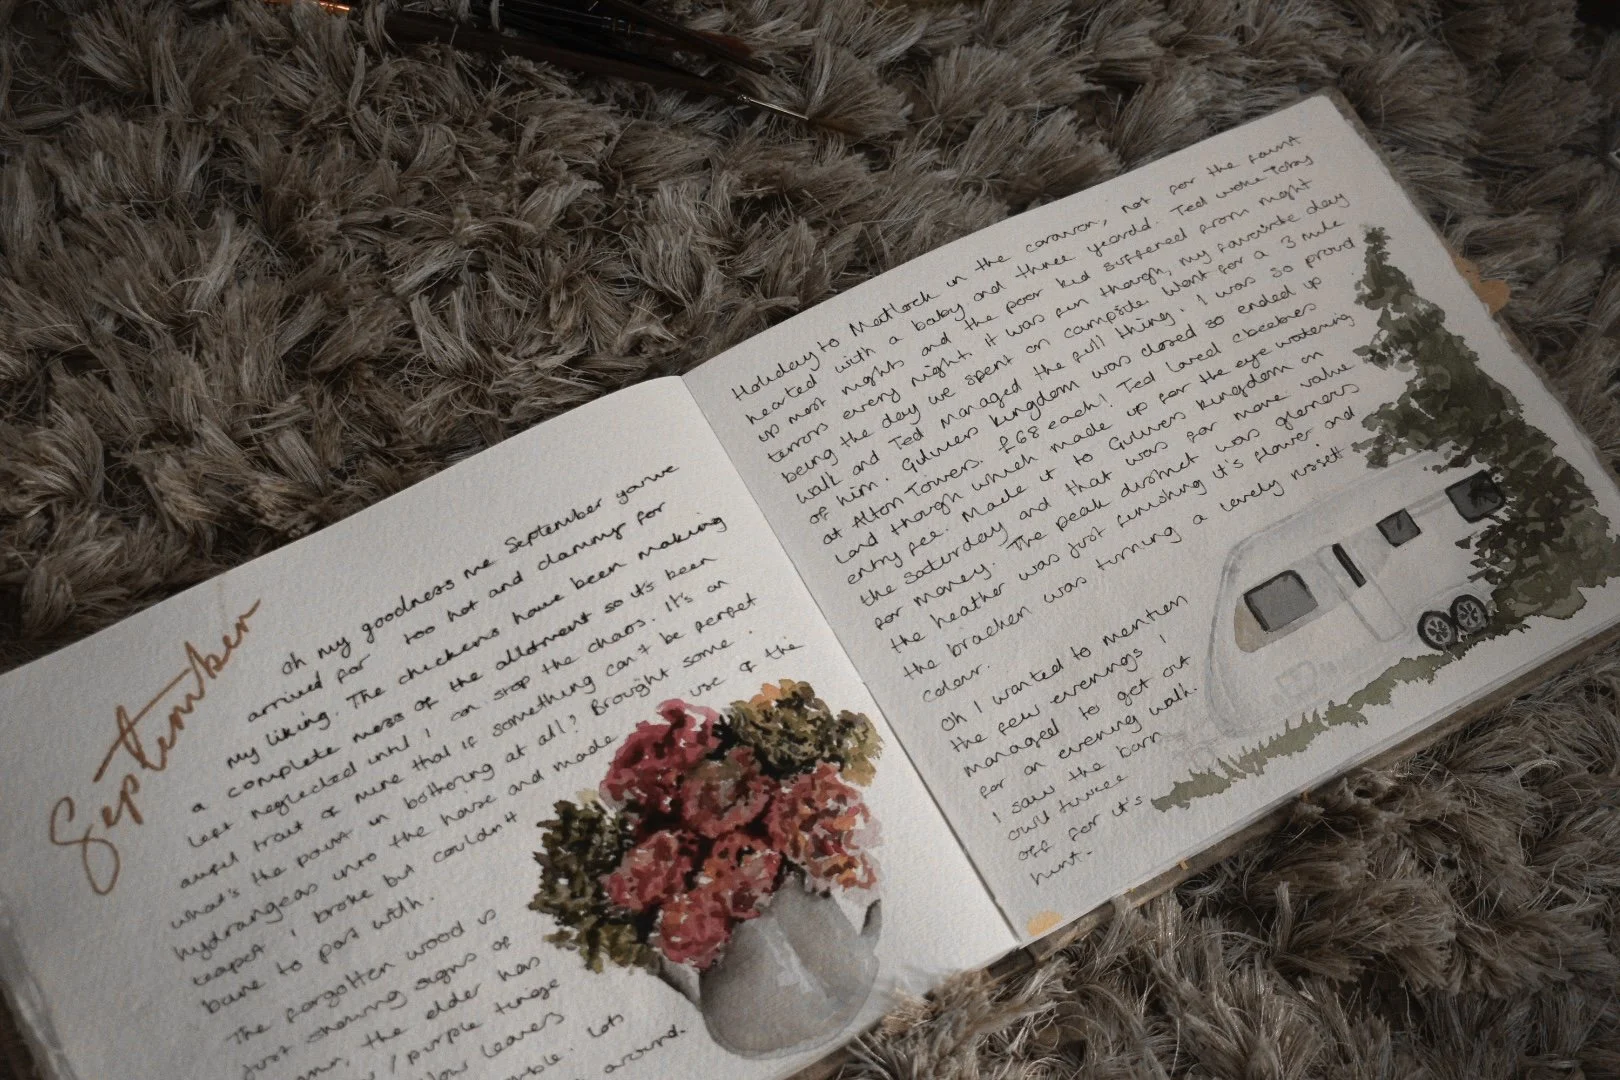 September
Oh my goodness me September you've
arrived far too hot and clammy for
my liking. The chickens have been making
a complete mess of the allotment so it's been
left neglected until I can stop the chaos. It's an
awful trait of mine that if something can't be perfect
what's the point in bothering at all? Brought some
hydrangeas into the house and made use of the
teapot I broke but couldn't
bare to part with.
The forgotten wood is
just showing signs of
the elder has
/ purple tinge
leaves
Lots
around.
Holiday to Matlock in the caravan, not for the faint
hearted with a baby and three yearold. Ted woke Toby
up most nights and the poor kid suffered from night
terrors every night. It was fun though, my favourite day
being the day we spent on campsite. Went for a 3 mile
walk and Ted managed the full thing, I was so proud
of him. Gulivers Kingdom was closed so ended up
at Alton Towers. £68 each! Ted loved cbeebies
land though which made up for the eye watering
entry fee. Made it to Gulivers Kingdom on
the Saturday and that was far more value
for money. The peak district was glorious
the heather was just finishing it's flower and
the bracken was turning a lovely russett
colour.
Oh I wanted to mention
the few evenings I
managed to get out
for an evening walk.
I saw the barn
owl twice
off for it's
hunt.